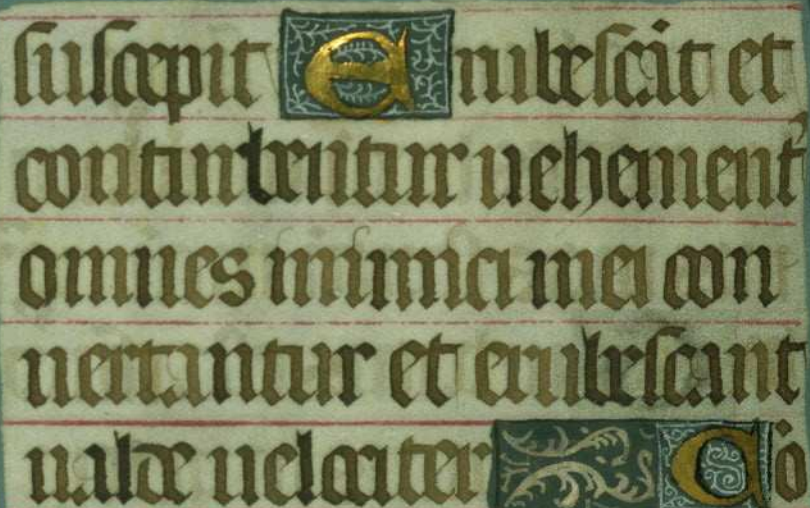 suscepit Erubescāt et
conturbentur uehement᷑
omnes inimici mei con
uertantur et erubescant
ualde uelociter G